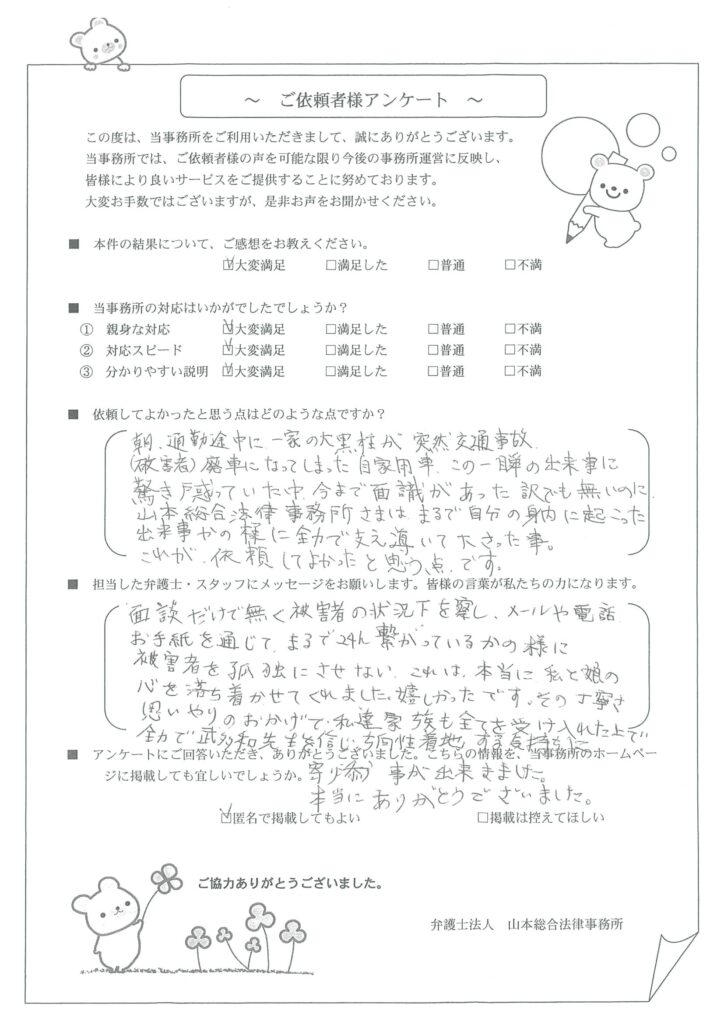 ～ ご依頼者様アンケート ～
この度は、当事務所をご利用いただきまして、誠にありがとうございます。
当事務所では、ご依頼者様の声を可能な限り今後の事務所運営に反映し、
皆様により良いサービスをご提供することに努めております。
大変お手数ではございますが、是非お声をお聞かせください。
■ 本件の結果について、ご感想をお教えください。
☑大変満足 □満足した □普通 □不満
■ 当事務所の対応はいかがでしたでしょうか？
① 親身な対応 ☑大変満足 □満足した □普通 □不満
② 対応スピード ☑大変満足 □満足した □普通 □不満
③ 分かりやすい説明 ☑大変満足 □満足した □普通 □不満
■ 依頼してよかったと思う点はどのような点ですか？
朝、通勤途中に、一家の大黒柱が突然交通事故
(被害者)廃車になってしまった自家用車、この一瞬の出来事に
驚き戸惑っていた中、今まで面識があった訳でも無いのに、
山本総合法律事務所さまは、まるで自分の身内に起こった
出来事かの様に全力で支え導いて下さった事。
これが、依頼してよかったと思う点、です。
■ 担当した弁護士・スタッフにメッセージをお願いします。皆様の言葉が私たちの力になります。
面談だけで無く被害者の状況下を察し、メールや電話
お手紙を通じて、まるで24h繋がっているかの様に
被害者を孤独にさせない、これは、本当に私と娘の
心を落ち着かせてくれました。嬉しかったです。その丁寧さ
思いやりのおかげで、私達家族も全てを受け入れた上で
全力で 先生を信じ、方向性着地、する気持ちに
■ アンケートにご回答いただき、ありがとうございました。こちらの情報を、当事務所のホームペー
ジに掲載しても宜しいでしょうか。
寄り添う事が出来きました。
本当にありがとうございました。
☑匿名で掲載してもよい □掲載は控えてほしい
ご協力ありがとうございました。
弁護士法人 山本総合法律事務所